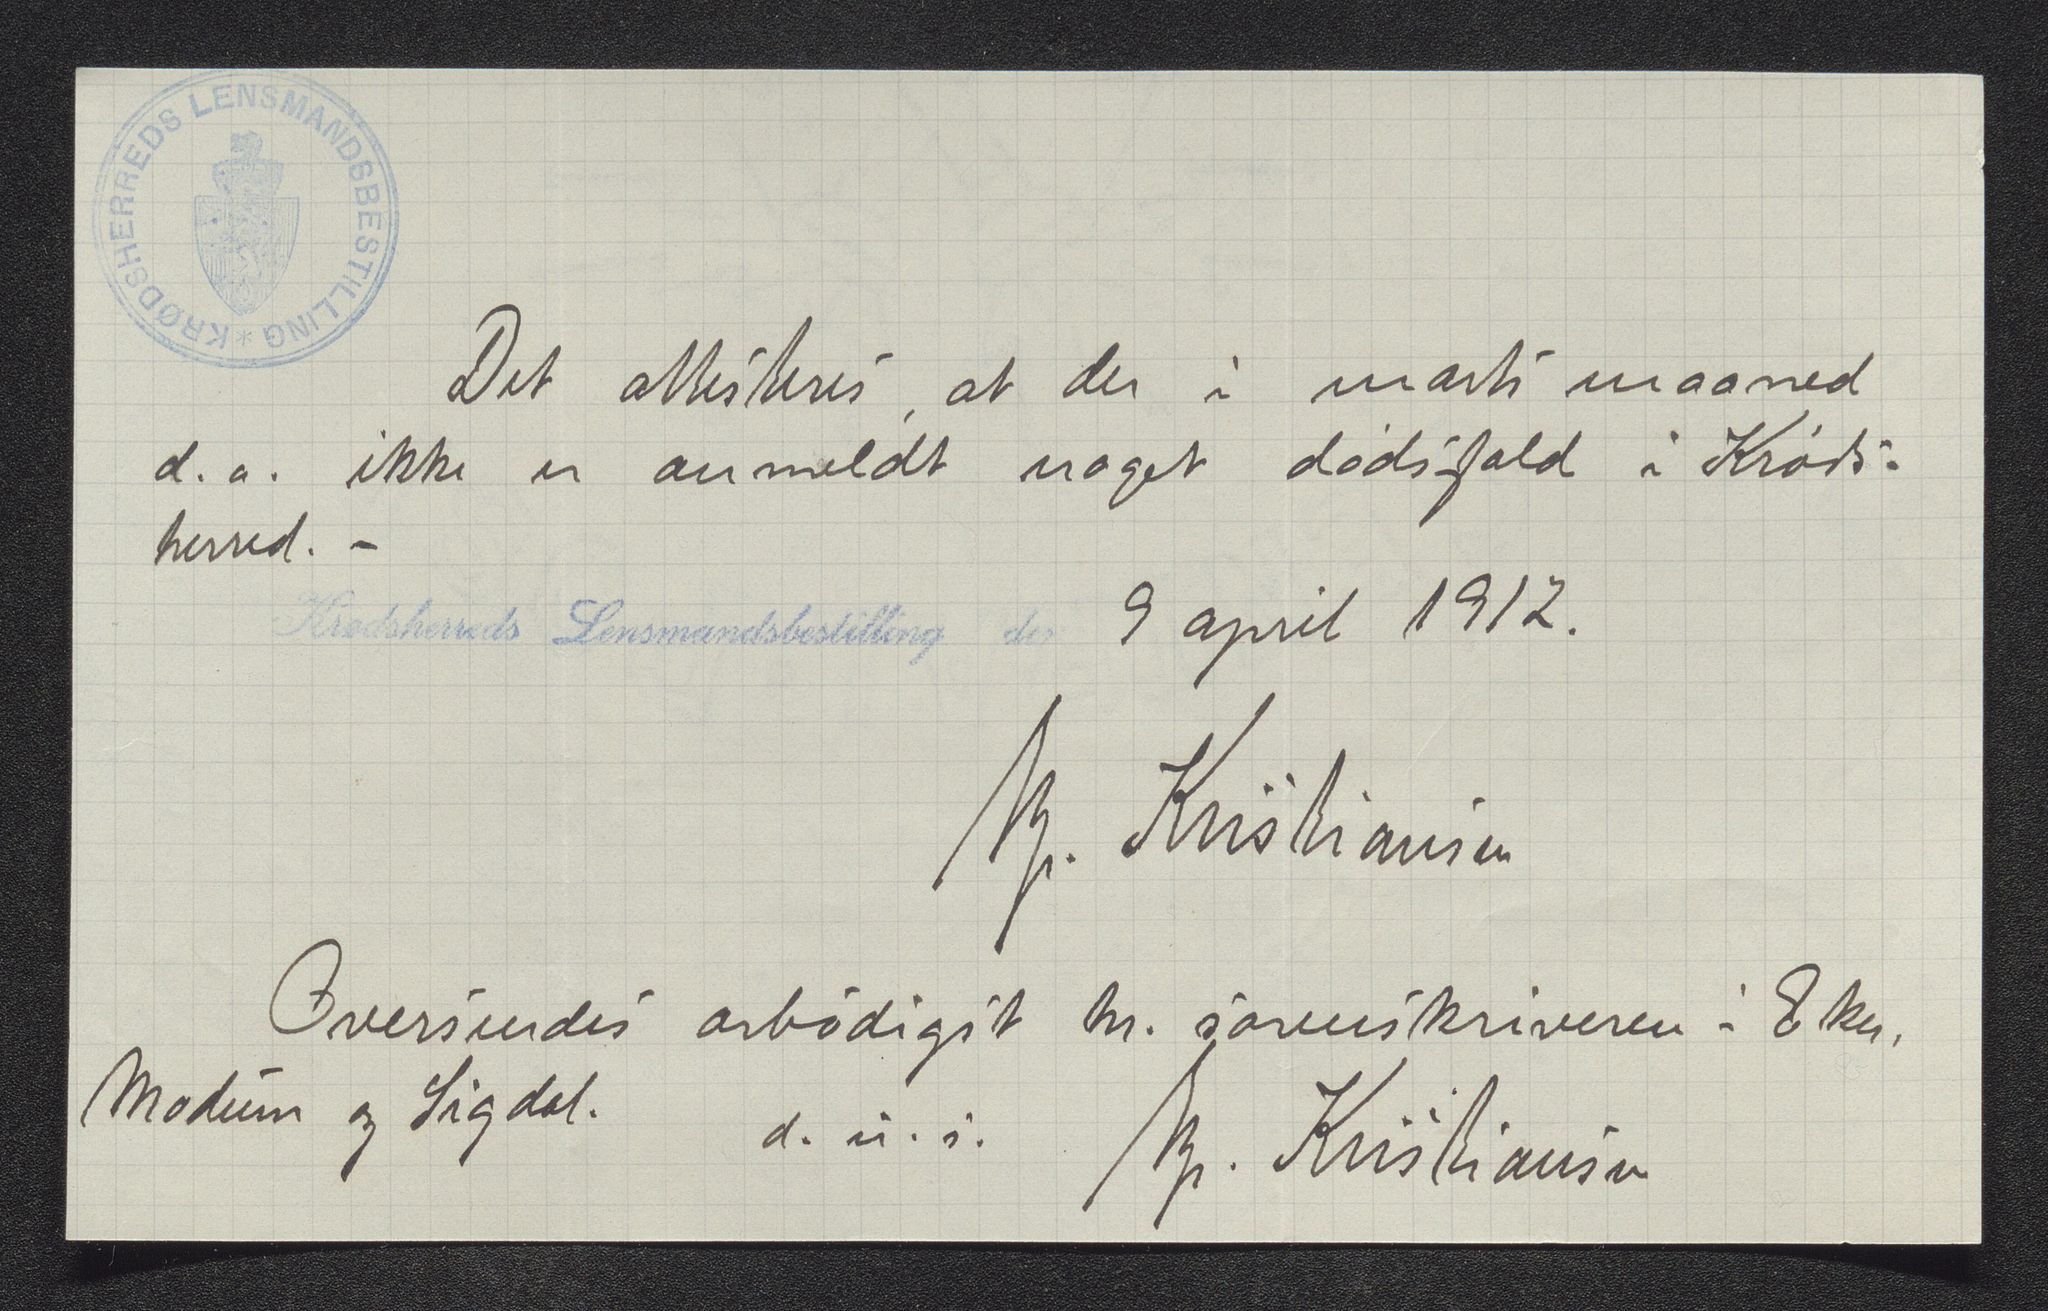 KRØDSHERREDS LENSMANDSBESTILLING *
Det attesteres, at der i marts maaned
d.a. ikke er anmeldt noget dødsfald i Krøds-
herred. -
Krødsherreds Lensmandsbestilling den 9 april 1912.
Kristiansen
Oversendes ærbødigst hr. sorenskriveren i Eker,
Modum og Sigdal.
d. u. s. Kristiansen